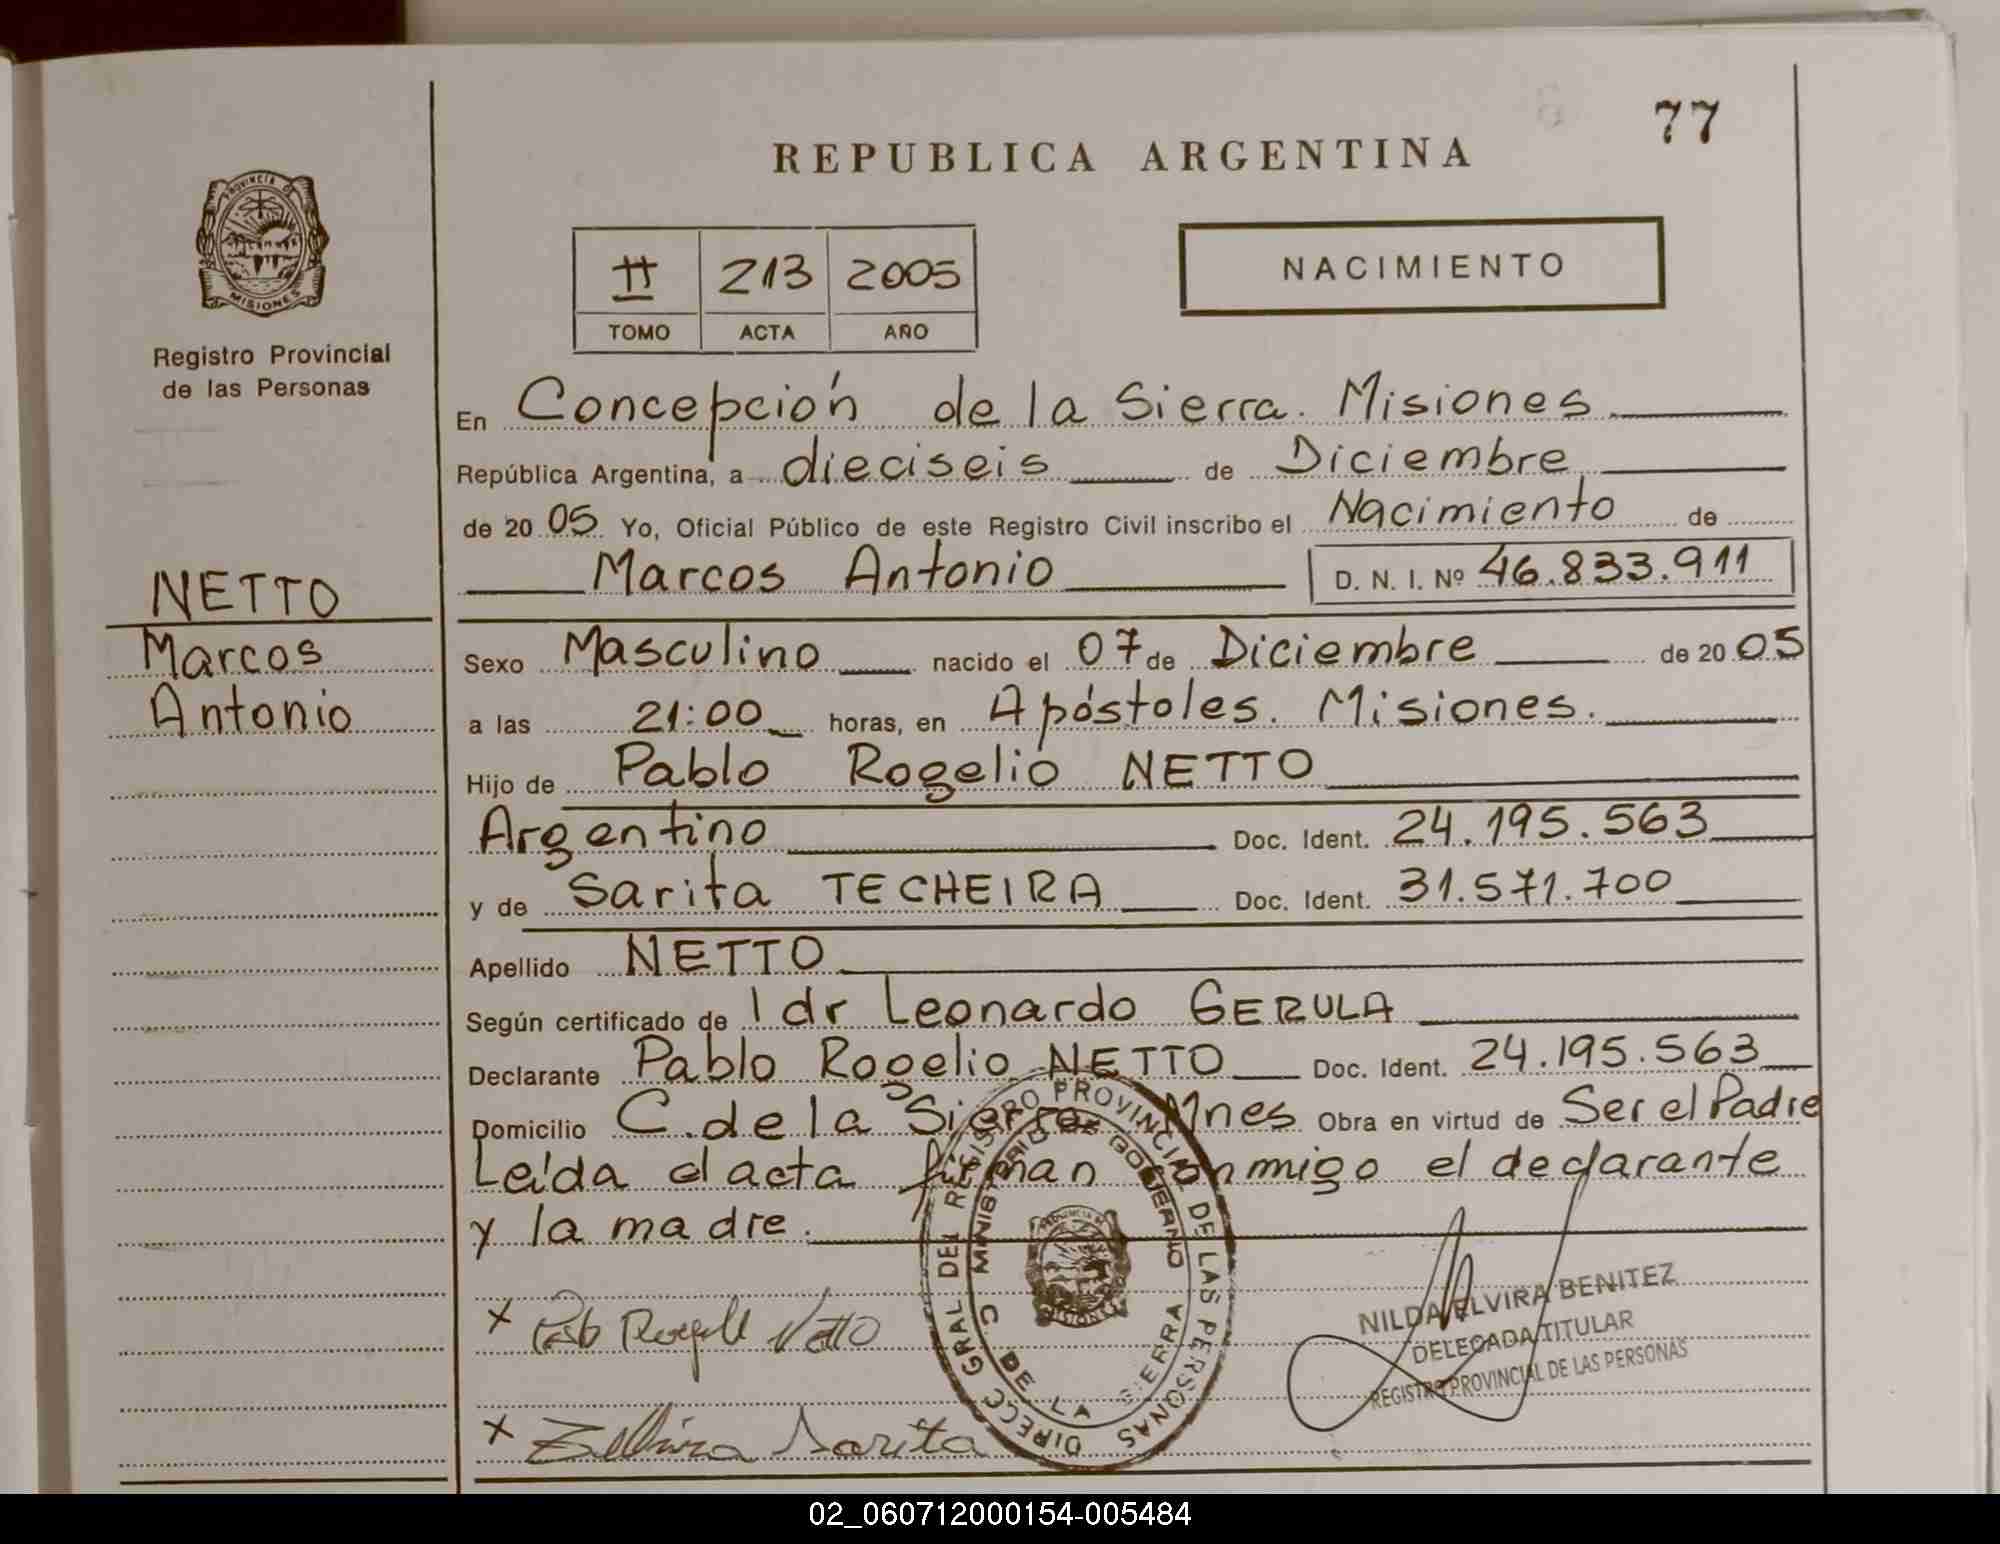 77
REPUBLICA ARGENTINA
PROVINCIA DE
MISIONES
Registro Provincial
de las Personas
II 213 2005
TOMO ACTA AÑO
NACIMIENTO
En Concepción de la Sierra. Misiones
República Argentina, a dieciseis de Diciembre
de 20 05 Yo, Oficial Público de este Registro Civil inscribo el Nacimiento de
Marcos Antonio D. N. I. Nº 46.833.911
NETTO
Marcos
Antonio
Sexo Masculino nacido el 07 de Diciembre de 20 05
a las 21:00 horas, en Apóstoles. Misiones.
Hijo de Pablo Rogelio NETTO
Argentino Doc. Ident. 24.195.563
y de Sarita TECHEIRA Doc. Ident. 31.571.700
Apellido NETTO
Según certificado de l dr Leonardo GERULA
Declarante Pablo Rogelio NETTO Doc. Ident. 24.195.563
Domicilio C. de la Sierra Mnes Obra en virtud de Ser el Padre
Leída el acta firman conmigo el declarante
y la madre.
DIRECC GRAL DEL REGISTRO PROVINCIAL DE LAS PERSONAS
MINISTERIO DE GOBIERNO
C. DE LA SIERRA
MISIONES
x Pablo Rogelio Netto
x Sarita
NILDA ELVIRA BENITEZ
DELEGADA TITULAR
REGISTRO PROVINCIAL DE LAS PERSONAS
02_060712000154-005484